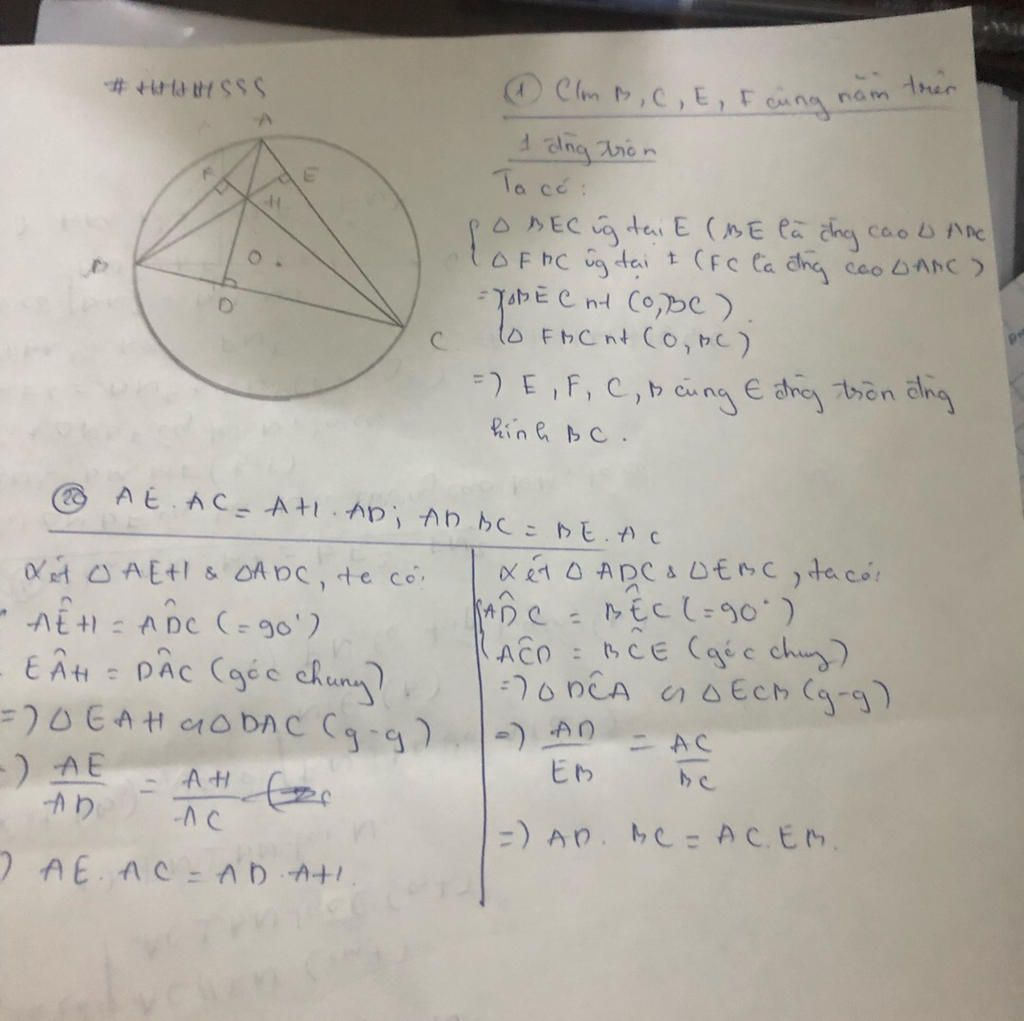 # HHHHSSS
A
F
E
H
B
O
D
C
① C/m B, C, E, F cùng nằm trên
1 đng tròn
Ta có:
△ BEC ⊥ tại E (BE là đng cao △ ABC
△ FBC ⊥ tại F (FC là đng cao △ ABC)
=> △BEC nt (O, BC)
△ FBC nt (O, BC)
=> E, F, C, B cùng ∈ đng tròn đng
kính BC.
AE. AC = AH. AD; AD. BC = BE. AC
Xét △ AEH & △ADC, ta có:
AÊH = AD̂C (=90°)
EÂH = DÂC (góc chung)
=> △ EAH ᔕ △ DAC (g-g)
=> AE/AD = AH/AC
=> AE. AC = AD. AH.
Xét △ ADC & △ EBC, ta có:
AD̂C = BÊC (=90°)
AĈD = BĈE (góc chung)
=> △ DCA ᔕ △ ECB (g-g)
=> AD/EB = AC/BC
=> AD. BC = AC. EB.